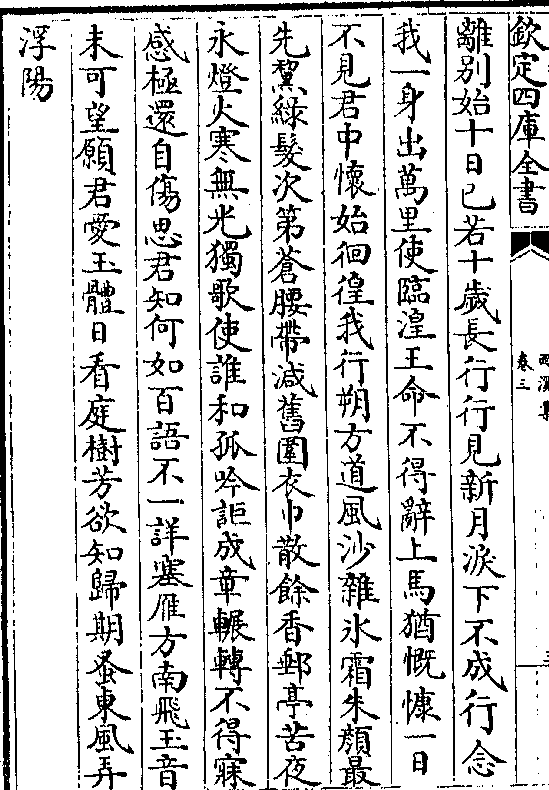 欽定四庫全書
西溪集
卷三
離別始十日已若十歲長行行見新月淚下不成行念
我一身出萬里使臨湟王命不得辭上馬猶慨慷一日
不見君中懷始徊徨我行朔方道風沙雜氷霜朱顔最
先黧綠髮次第蒼腰帶減舊圍衣巾散餘香郵亭苦夜
永燈火寒無光獨歌使誰和孤吟詎成章輾轉不得寐
感極還自傷思君知何如百語不一詳塞雁方南飛玉音
未可望願君愛玉體日看庭樹芳欲知歸期蚤東風弄
浮陽